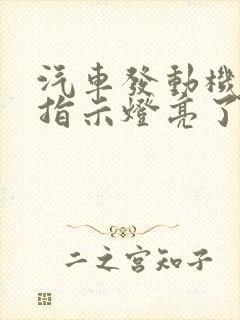 汽車發動機
指示燈亮了
二之宮知子